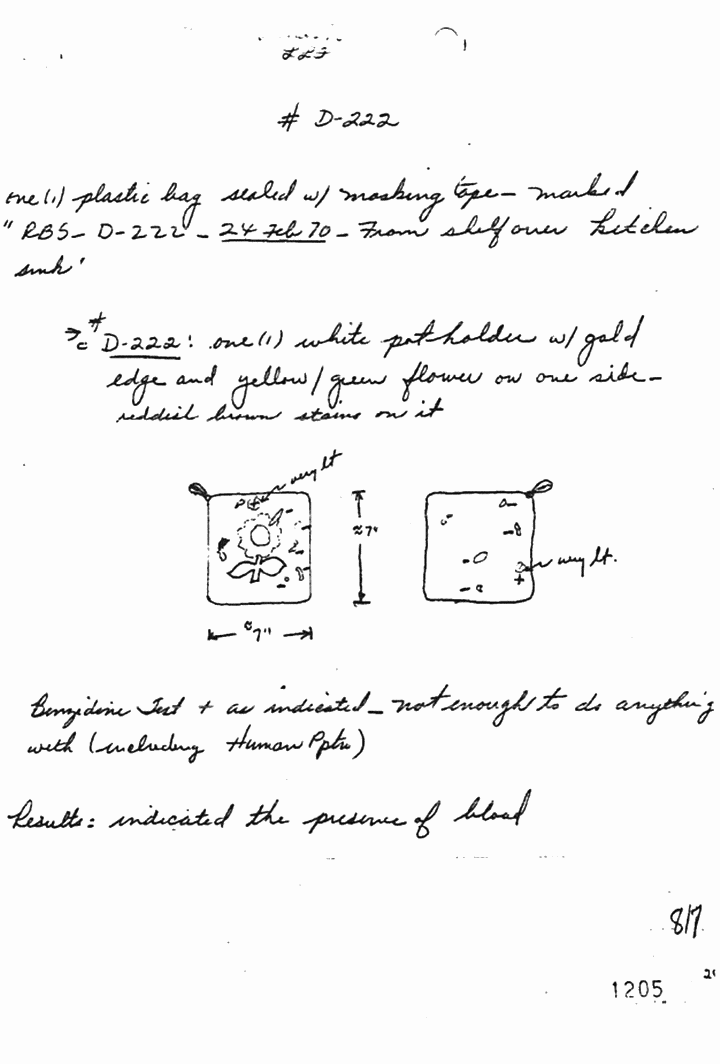 222
# D-222
one (1) plastic bag sealed w/ masking tape — marked
" RBS — D-222 — 24 Feb 70 — From shelf over kitchen
sink"
# D-222: one (1) white pot holder w/ gold
edge and yellow/green flower on one side —
reddish brown stains on it
very lt
≈7"
very lt.
≈7"
Benzidine Test + as indicated — not enough to do anything
with (including Human Pptn)
Results: indicated the presence of blood
817
1205